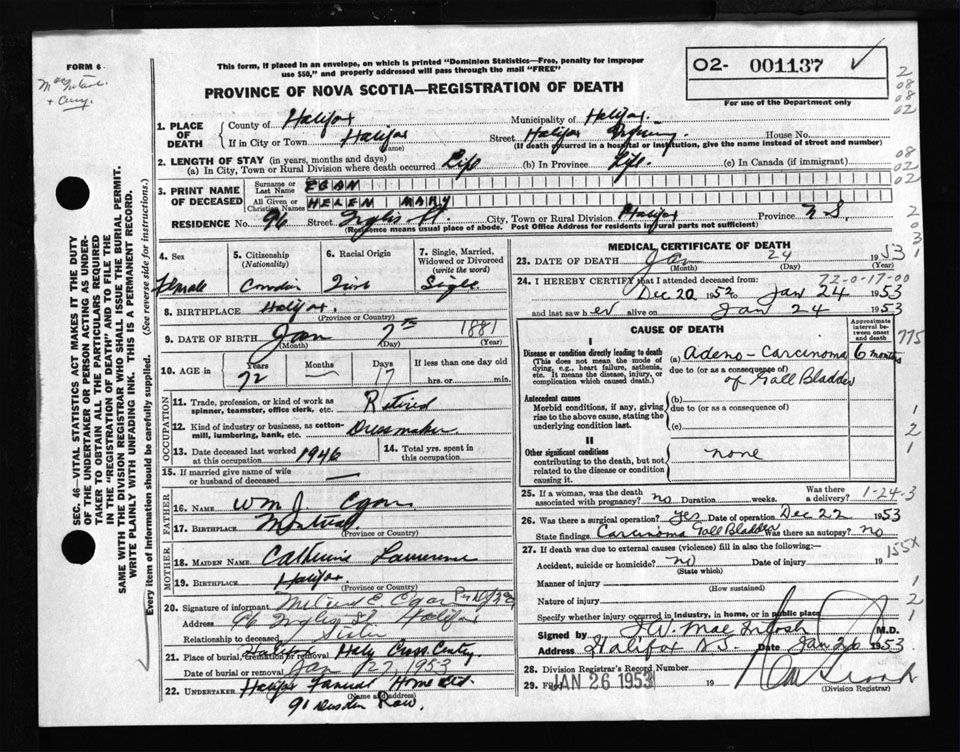 FORM 6
This form, if placed in an envelope, on which is printed "Dominion Statistics—Free, penalty for improper
use $50," and properly addressed will pass through the mail "FREE"
PROVINCE OF NOVA SCOTIA—REGISTRATION OF DEATH
02- 001137 ✓
For use of the Department only
1. PLACE OF DEATH County of Halifax Municipality of Halifax
If in City or Town Halifax Street Halifax Infirmary House No.
(Name) (If death occurred in a hospital or institution, give the name instead of street and number)
2. LENGTH OF STAY (in years, months and days)
(a) In City, Town or Rural Division where death occurred Life (b) In Province Life. (c) In Canada (if immigrant)
3. PRINT NAME OF DECEASED Surname or Last Name EGAN
All Given or Christian Names HELEN MARY
RESIDENCE No. 96 Street Inglis St. City, Town or Rural Division Halifax Province N.S.
(Residence means usual place of abode. Post Office Address for residents in rural parts not sufficient)
4. Sex Female
5. Citizenship (Nationality) Canadian
6. Racial Origin Irish
7. Single, Married, Widowed or Divorced (write the word) Single
8. BIRTHPLACE Halifax.
(Province or Country)
9. DATE OF BIRTH Jan 7th 1881
(Month) (Day) (Year)
10. AGE in Years Months Days If less than one day old
72 — 17 hrs. or min.
OCCUPATION
11. Trade, profession, or kind of work as spinner, teamster, office clerk, etc. Retired
12. Kind of industry or business, as cotton-mill, lumbering, bank, etc. Dressmaker
13. Date deceased last worked at this occupation 1946
14. Total yrs. spent in this occupation
15. If married give name of wife or husband of deceased —
FATHER
16. NAME Wm J. Egan
17. BIRTHPLACE Montreal
(Province or Country)
MOTHER
18. MAIDEN NAME Catherine Lawrence
19. BIRTHPLACE Halifax.
(Province or Country)
20. Signature of informant E. Egan
Address 96 Inglis St. Halifax
Relationship to deceased Sister
21. Place of burial, cremation or removal Halifax Holy Cross Cemtry
Date of burial or removal Jan 27, 1953
22. UNDERTAKER Halifax Funeral Home Ltd.
(Name and Address)
91 Row.
MEDICAL CERTIFICATE OF DEATH
23. DATE OF DEATH Jan 24 1953
(Month) (Day) (Year)
72-0-17-00
24. I HEREBY CERTIFY that I attended deceased from:
Dec 20 1952 to Jan 24 1953
and last saw her alive on Jan 24 1953
CAUSE OF DEATH
Approximate interval between onset and death
I
Disease or condition directly leading to death (a) Adeno-Carcinoma 6 months
(This does not mean the mode of dying, e.g., heart failure, asthenia, etc. It means the disease, injury, or complication which caused death.)
due to (or as a consequence of)
of Gall Bladder
Antecedent causes
Morbid conditions, if any, giving rise to the above cause, stating the underlying condition last.
(b)
due to (or as a consequence of)
(c)
II
Other significant conditions
contributing to the death, but not related to the disease or condition causing it.
none
25. If a woman, was the death associated with pregnancy? no Duration weeks. Was there a delivery? 1-24-3
26. Was there surgical operation? Yes Date of operation Dec 22 1953
State findings Carcinoma Gall Bladder Was there an autopsy? no
27. If death was due to external causes (violence) fill in also the following:—
155X
Accident, suicide or homicide? no Date of injury 19
(State which)
Manner of injury
(How sustained)
Nature of injury
Specify whether injury occurred in industry, in home, or in public place
Signed by J.W. MacIntosh M.D.
Address Halifax N.S. Date Jan 26 1953
28. Division Registrar's Record Number
29. Filed JAN 26 1953 19
(Division Registrar)
SEC. 46—VITAL STATISTICS ACT MAKES IT THE DUTY
OF THE UNDERTAKER OR PERSON ACTING AS UNDER-
TAKER TO OBTAIN ALL THE PARTICULARS REQUIRED
IN THE "REGISTRATION OF DEATH" AND TO FILE THE
SAME WITH THE DIVISION REGISTRAR WHO SHALL ISSUE THE BURIAL PERMIT.
WRITE PLAINLY WITH UNFADING INK. THIS IS A PERMANENT RECORD.
Every item of information should be carefully supplied. (See reverse side for instructions.)
2
08
08
02
08
02
2
203
1
775
1
2
1
1
2
1